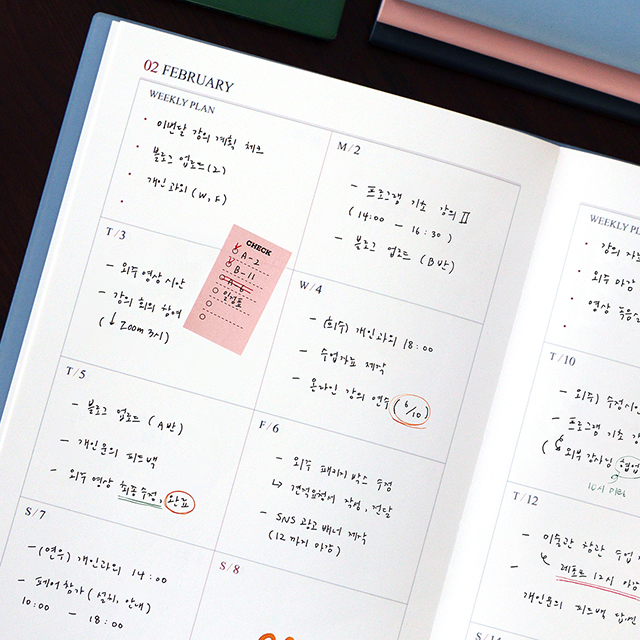 02 FEBRUARY
WEEKLY PLAN
이번달 강의 계획 체크
블로그 업로드(2)
개인과외(W,F)
M/2
- 프로그램 기초 강의 II
(14:00 - 16:30)
- 블로그 업로드 (B반)
T/3
- 외주영상 시안
- 강의 회의 참여
(↓ Zoom 3시)
CHECK
A-2
B-11
A-6
W/4
- (회수) 개인과외 18:00
- 수업자료 제작
- 온라인 강의 연수 (6/10)
T/5
- 블로그 업로드 (A반)
- 개인문의 피드백
- 외주 영상 최종수정, 완료
F/6
- 외주 패키지 박스 수정
↳ 견적요청서 작성, 전달
- SNS 광고 배너 제작
(12까지 마감)
S/7
- (연우) 개인과외 14:00
- 페어참가 (설치, 안내)
10:00 - 18:00
S/8
WEEKLY PL
강의
외주 마감
영상
T/10
- 외주) 수정시안
- 프로그램 기초
( 외부 강사님 협업
10시 미팅
T/12
- 미술관 참관 수업
레포트 12시 마감
개인문의 피드백 답변
S/14